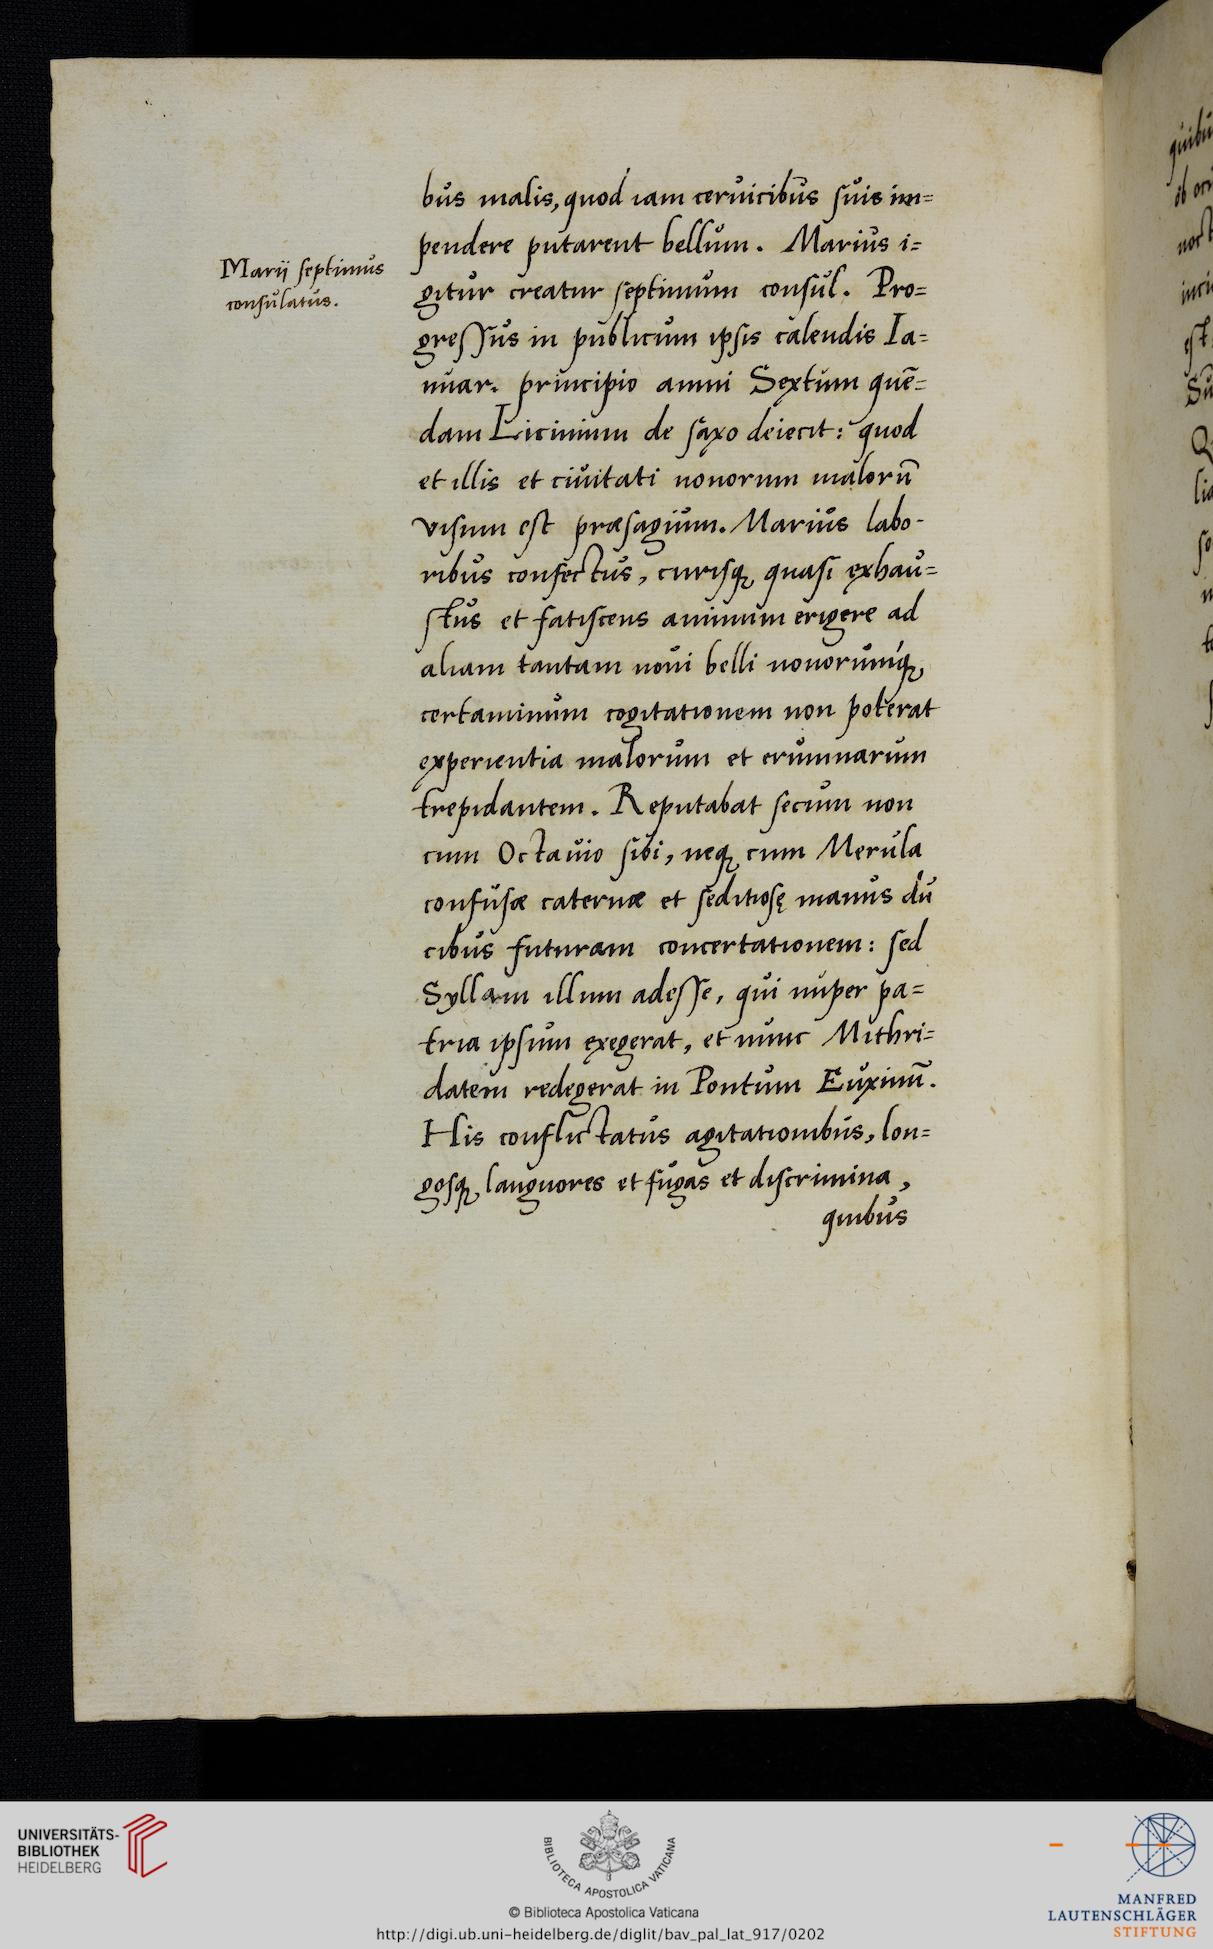 Marij septimus
consulatus.
bus malis, quod iam ceruicibus suis im=
pendere putarent bellum. Marius i=
gitur creatur septimum consul. Pro=
gressus in publicum ipsis calendis Ia=
nuar. principio anni Sextum quē=
dam Licinium de saxo deiecit: quod
et illis et ciuitati nouorum malorū
visum est præsagium. Marius labo-
ribus confectus, curisq, quasi exhau=
stus et fatiscens animum erigere ad
aliam tantam noui belli nouorumq́,
certaminum cogitationem non poterat
experientia malorum et erumnarum
trepidantem. Reputabat secum non
cum Octauio sibi, neq, cum Merula
confusæ cateruæ et seditiosę manus du
cibus futuram concertationem: sed
Syllam illum adesse, qui nuper pa=
tria ipsum exegerat, et nunc Mithri=
datem redegerat in Pontum Euxinū.
His conflictatus agitationibus, lon=
gosq, languores et fugas et discrimina,
quibus
UNIVERSITÄTS-
BIBLIOTHEK
HEIDELBERG
BIBLIOTECA APOSTOLICA VATICANA
© Biblioteca Apostolica Vaticana
http://digi.ub.uni-heidelberg.de/diglit/bav_pal_lat_917/0202
MANFRED
LAUTENSCHLÄGER
STIFTUNG